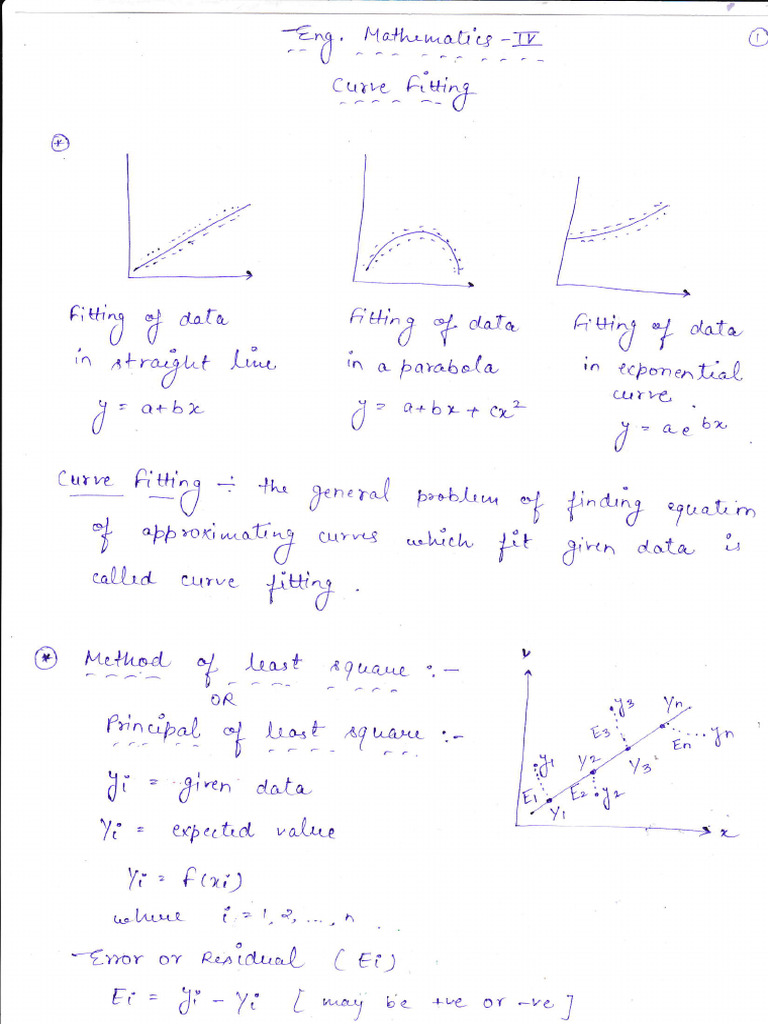 Eng. Mathematics - IV
1
Curve Fitting
Fitting of data
in straight line
y = a+bx
Fitting of data
in a parabola
y = a+bx + cx²
Fitting of data
in exponential
curve
y = a e^bx
Curve Fitting ÷ the general problem of finding equation
of approximating curves which fit given data is
called curve fitting.
* Method of least square :-
OR
Principal of least square :-
yi = given data
Yi = expected value
Yi = f(xi)
where i = 1, 2, ..., n
Error or Residual (Ei)
Ei = yi - Yi [ may be +ve or -ve ]
y1
E1
Y1
Y2
E2
y2
y3
E3
Y3
Yn
En
yn
x